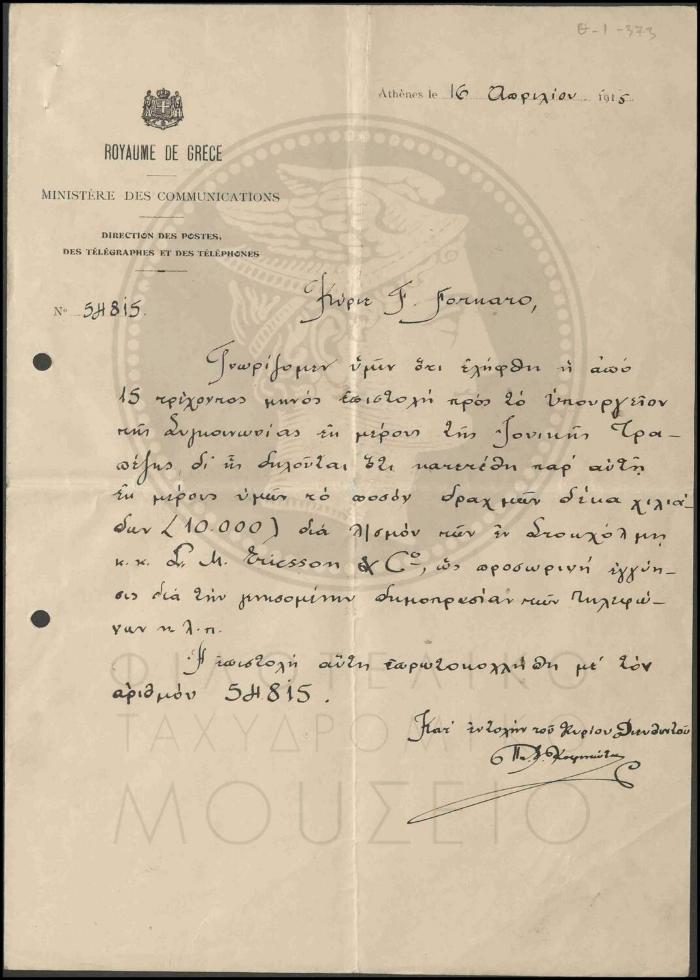 Θ-1-373
Athènes le 16 Απριλίου 1915
ROYAUME DE GRÈCE
MINISTÈRE DES COMMUNICATIONS
DIRECTION DES POSTES,
DES TÉLÉGRAPHES ET DES TÉLÉPHONES
Nº 54815.
Κύριε F. Fornaro,
Γνωρίζομεν ὑμῖν ὅτι ἐλήφθη ἡ ἀπό
15 τρέχοντος μηνός ἐπιστολή πρός τό Ὑπουργεῖον
τῆς Συγκοινωνίας ἐκ μέρους τῆς Ἰονικῆς Τρα-
πέζης δι' ἧς δηλοῦται ὅτι κατετέθη παρ' αὐτῇ
ἐκ μέρους ὑμῶν τό ποσόν δραχμῶν δέκα χιλιά-
δων (10.000) διά λ/σμόν τῶν ἐν Στοκχόλμῃ
κ.κ. L. M. Ericsson & Cº, ὡς προσωρινή ἐγγύη-
σις διά τήν γενησομένην δημοπρασίαν τῶν τηλεφώ-
νων κ.λ.π.
Ἡ ἐπιστολή αὕτη ἐπρωτοκολλήθη μέ τόν
ἀριθμόν 54815.
Κατ' ἐντολήν τοῦ Κυρίου Διευθυντοῦ
ΦΙΛΟΤΕΛΙΚΟ
ΤΑΧΥΔΡΟΜΙΚΟ
ΜΟΥΣΕΙΟ